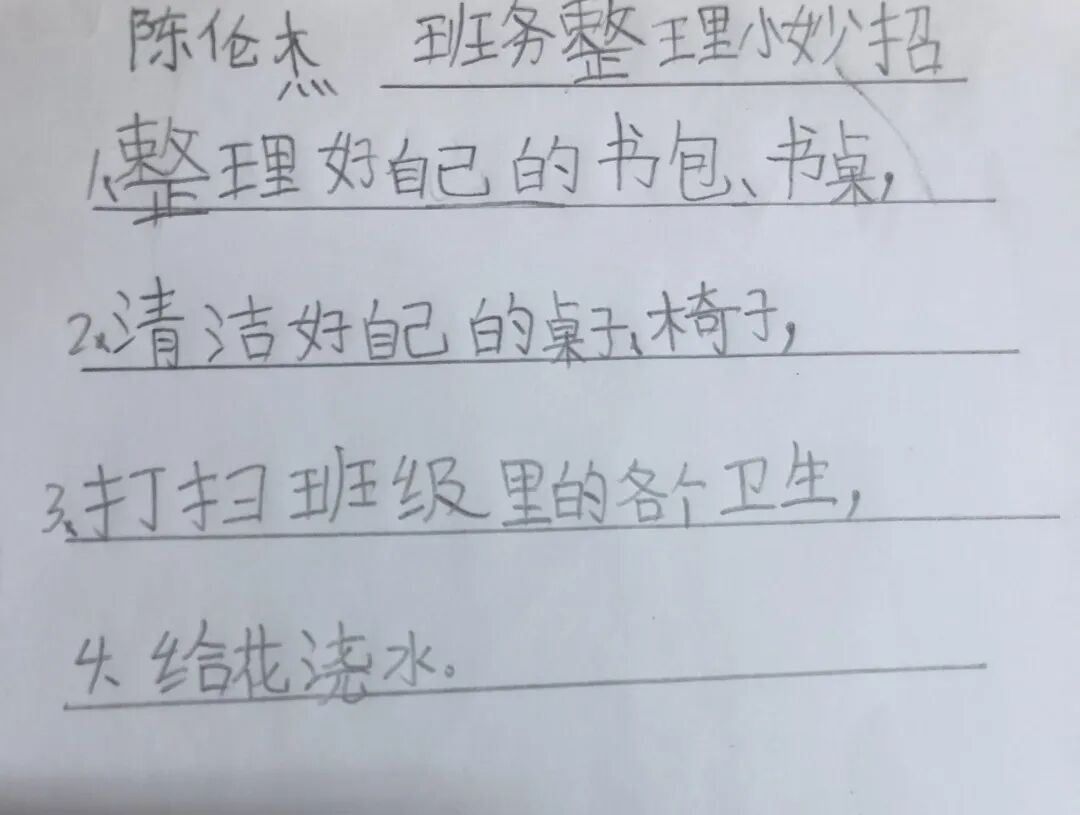 陈伦杰 班务整理小妙招
1、整理好自己的书包、书桌，
2、清洁好自己的桌子、椅子，
3、打扫班级里的各个卫生，
4、给花浇水。